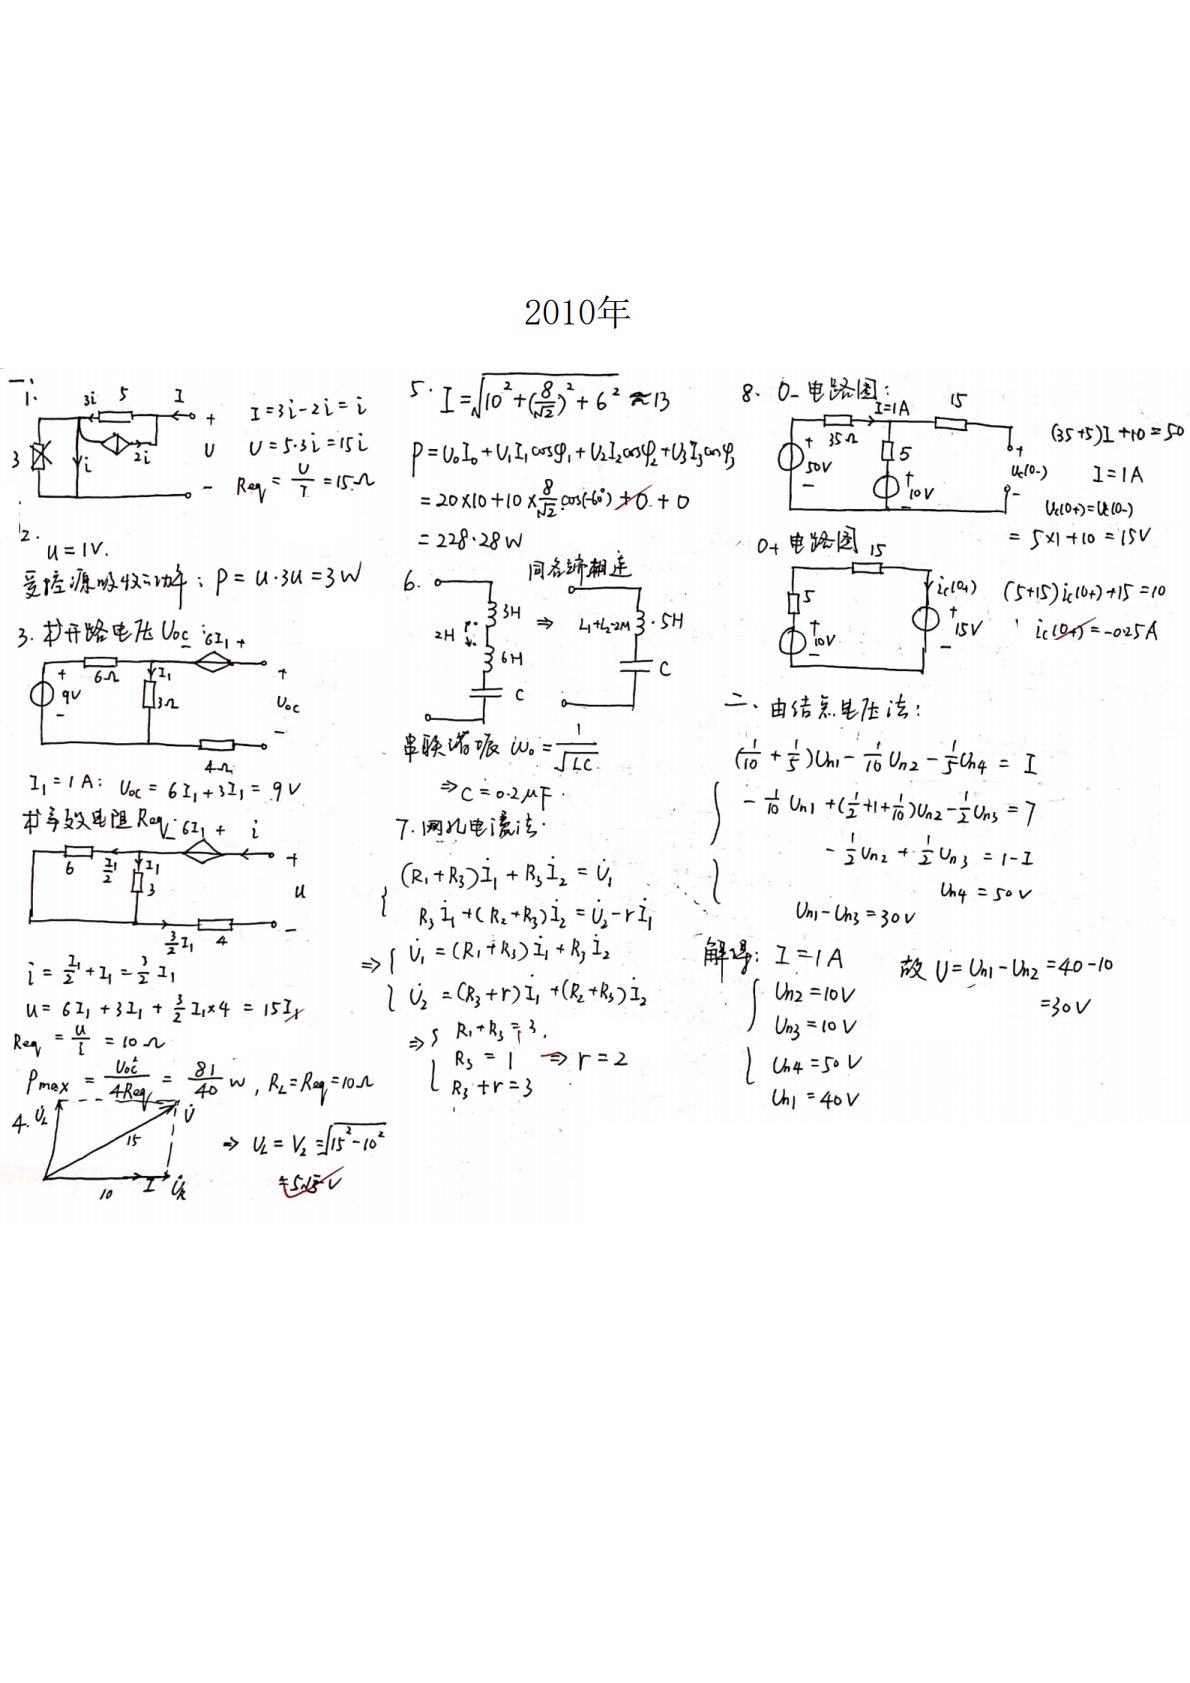 2010年
一、
1.
3i
5
I
+
3
i
2i
U
−
I=3i−2i=i
U=5·3i=15i
Req=U/I=15Ω
2.
u=1V.
受控源吸收功率: P=u·3u=3W
3. 求开路电压Uoc
− 6I₁ +
6Ω
+
9V
−
I₁
3Ω
+
Uoc
−
4Ω
I₁=1A: Uoc=6I₁+3I₁=9V
求等效电阻Req
− 6I₁ +
i
6
I₁/2
I₁
3
+
u
−
3/2 I₁
4
i=I₁/2+I₁=3/2 I₁
u=6I₁+3I₁+3/2 I₁×4=15I₁
Req=u/i=10Ω
Pmax=Uoc²/4Req=81/40 W, RL=Req=10Ω
4.
U̇L
U̇
15
10
I
U̇R
⇒ UL=V₂=√(15²−10²)
=5√5 V
5. I=√(10²+(8/√2)²+6²)≈13
P=U₀I₀+U₁I₁cosφ₁+U₂I₂cosφ₂+U₃I₃cosφ₃
=20×10+10×8/√2 cos(−60°)+0+0
=228.28W
6.
同名端相连
3H
2H
6H
C
⇒
L₁+L₂−2M
5H
C
串联谐振 ω₀=1/√LC
⇒C=0.2μF
7. 网孔电流法.
{ (R₁+R₃)İ₁+R₃İ₂=U̇₁
R₃İ₁+(R₂+R₃)İ₂=U̇₂−rİ₁
⇒ { U̇₁=(R₁+R₃)İ₁+R₃İ₂
U̇₂=(R₃+r)İ₁+(R₂+R₃)İ₂
⇒ { R₁+R₃=3
R₃=1 ⇒ r=2
R₃+r=3
8. 0₋电路图:
I=1A
15
35Ω
+
50V
−
5
+
10V
−
+
Uc(0−)
−
(35+5)I+10=50
I=1A
Uc(0+)=Uc(0−)
=5×1+10=15V
0+电路图
15
5
+
10V
−
ic(0+)
+
15V
−
(5+15)ic(0+)+15=10
ic(0+)=−0.25A
二、由结点电压法:
{ (1/10+1/5)Un1−1/10 Un2−1/5 Un4=I
−1/10 Un1+(1/2+1+1/10)Un2−1/2 Un3=7
−1/2 Un2+1/2 Un3=1−I
Un4=50V
Un1−Un3=30V
解得: I=1A
Un2=10V
Un3=10V
Un4=50V
Un1=40V
故 U=Un1−Un2=40−10
=30V